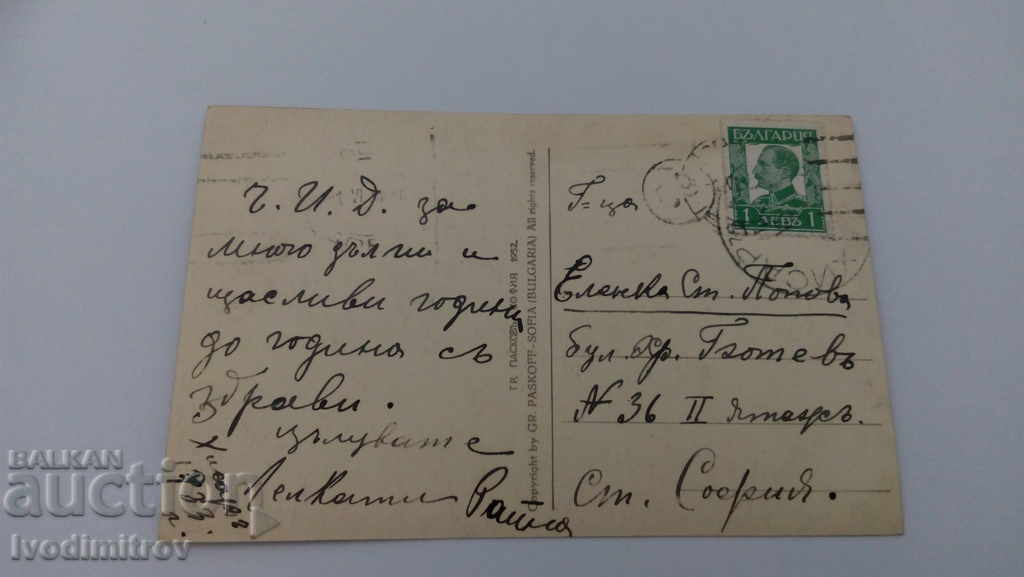 Ч. И. Д. за
много дълги и
щасливи години
до година съ
здрави.
цѣлувате
Лелкати Райна
1933
г.
ГР. ПАСКОВЪ-СОФИЯ 1932.
Copyright by GR. PASKOFF-SOFIA (BULGARIA) All rights reserved.
БЪЛГАРИЯ
1 ЛЕВЪ 1
Г-ца
Еленка Ст. Попова
бул. Хр. Ботевъ
N 36 II ятажъ.
Ст. София.
BALKAN
auction
Ivodimitrov